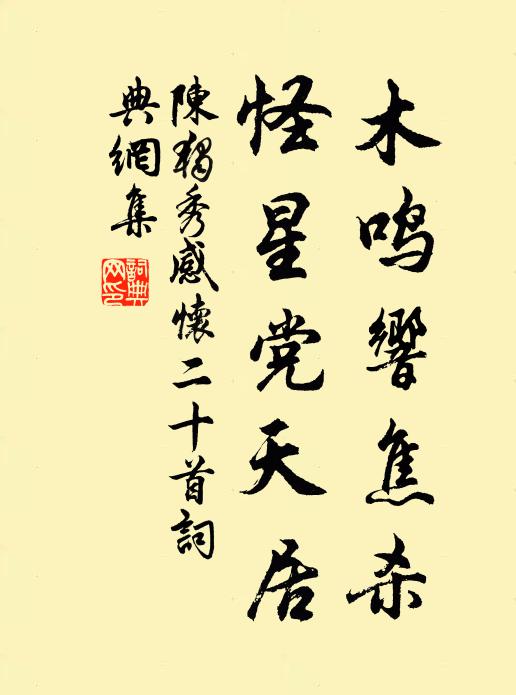 木鸣響焦杀
怪星党天居
陳獨秀感懷二十首詞
典網集
詞典网印